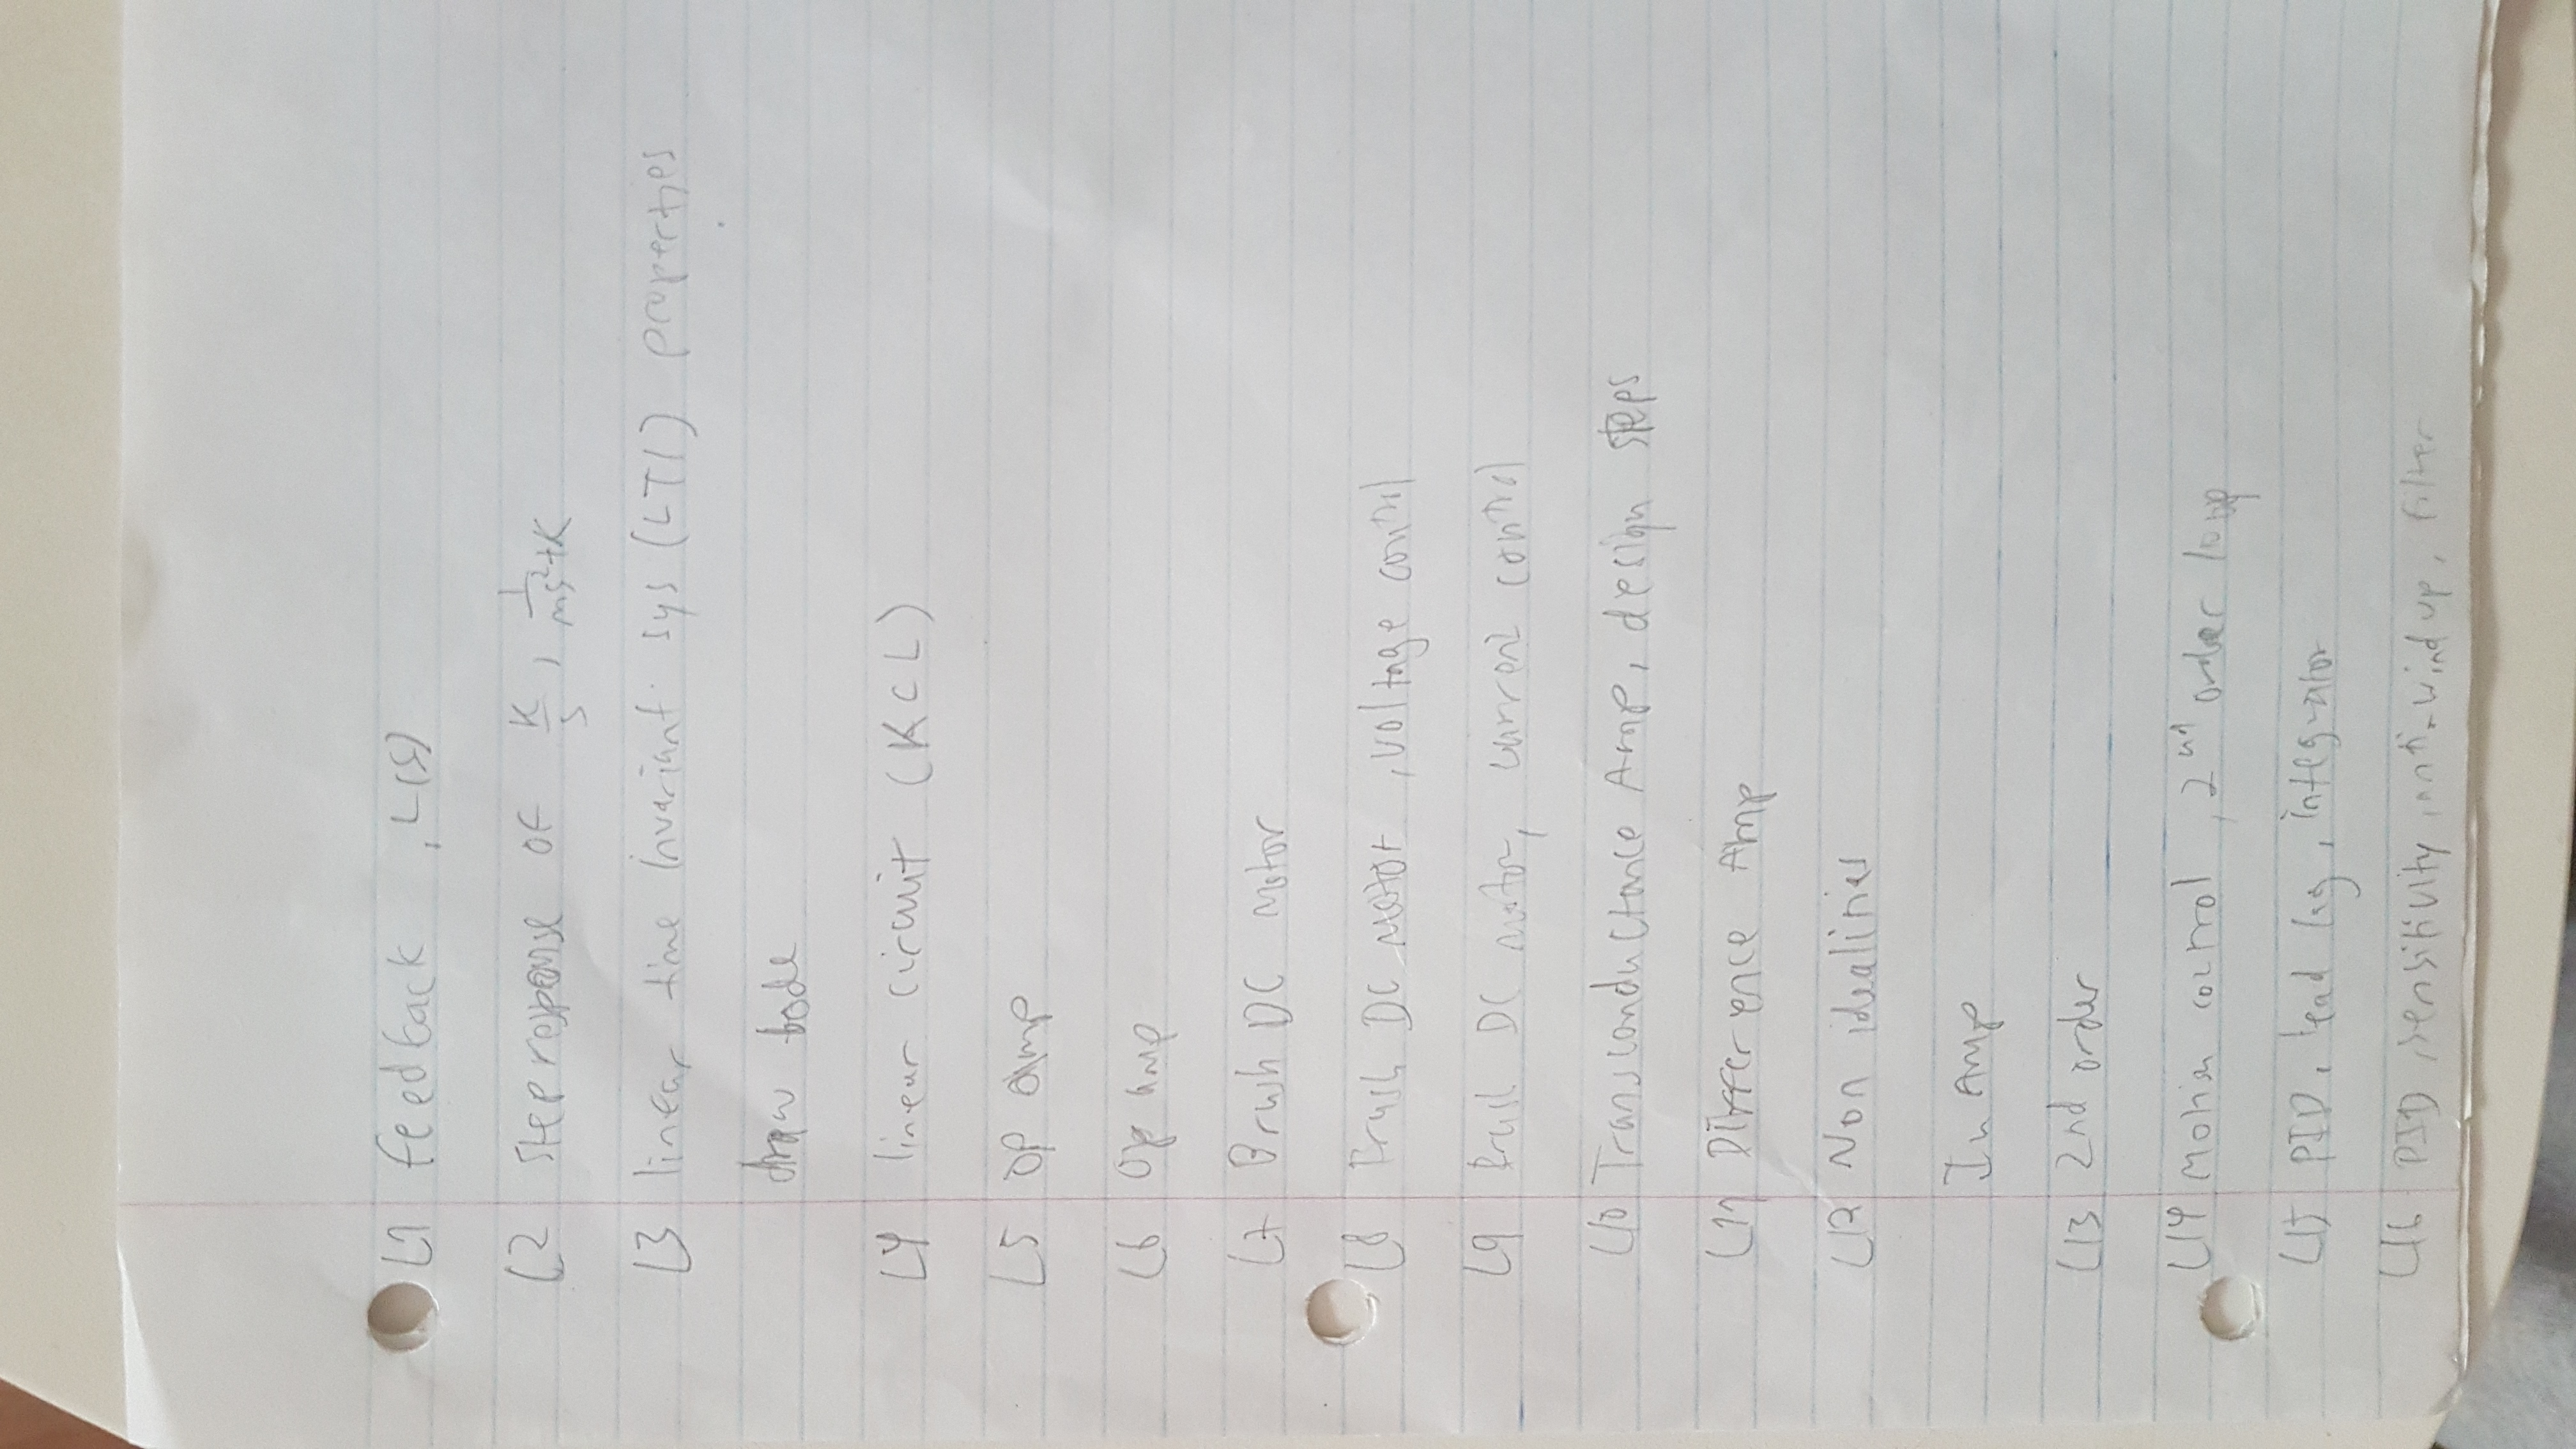 L1 feedback , L(s)
L2 step response of K/s , 1/(ms²+K)
L3 linear time invariant sys (LTI) properties
draw bode
L4 linear circuit (KCL)
L5 op amp
L6 op amp
L7 Brush DC motor
L8 Brush DC motor , voltage control
L9 Brush DC motor, current control
L10 Transconductance Amp, design steps
L11 Difference Amp
L12 Non idealities
In Amp
L13 2nd order
L14 motion control , 2nd order loop
L15 PID, lead lag, integrator
L16 PID, sensitivity, anti-wind up, filter